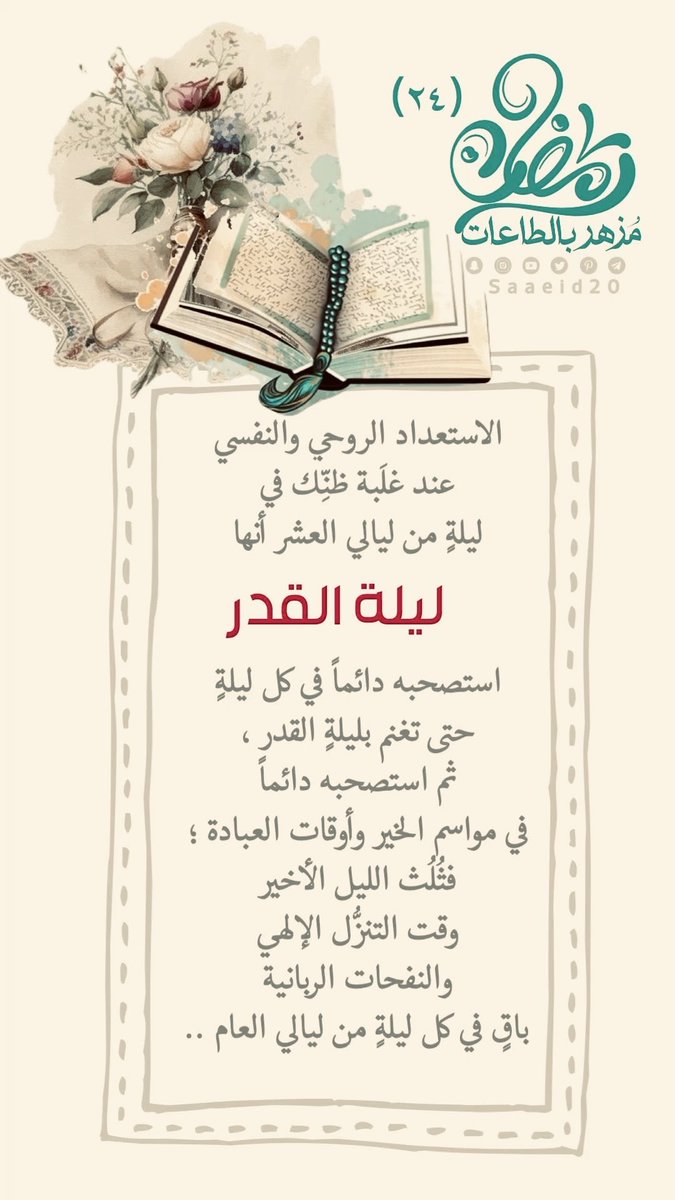 (٢٤)
رمضان
مُزهر بالطاعات
Saaeid20
الاستعداد الروحي والنفسي
عند غلَبة ظنِّك في
ليلةٍ من ليالي العشر أنها
ليلة القدر
استصحبه دائماً في كل ليلةٍ
حتى تغنم بليلةٍ القدر ،
ثم استصحبه دائماً
في مواسم الخير وأوقات العبادة ؛
فثُلُث الليل الأخير
وقت التنزُّل الإلهي
والنفحات الربانية
باقٍ في كل ليلةٍ من ليالي العام ..